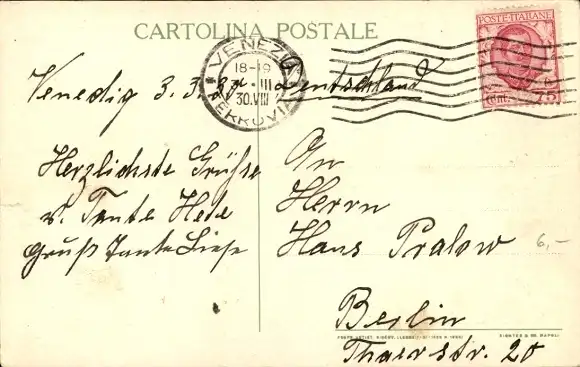 CARTOLINA POSTALE
POSTE ITALIANE
Cent. 75
VENEZIA
18-19
30.VIII
FERROVIA
Venedig 3.
Deutschland
Herzlichste Grüße
v. Tante Hede
Gruß Tante Liese
An
Herrn
Hans Pralow
6,-
Berlin
Thaerstr. 20